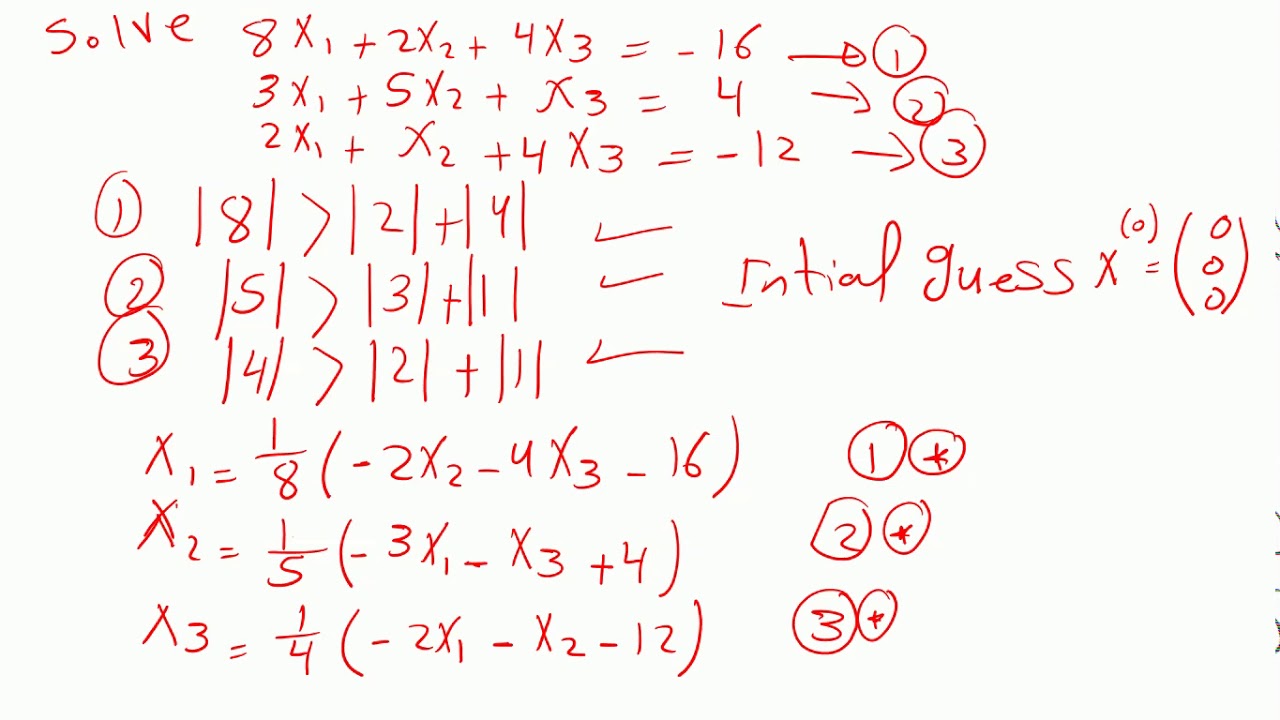 Solve 8x₁ + 2x₂ + 4x₃ = -16 → ①
3x₁ + 5x₂ + x₃ = 4 → ②
2x₁ + x₂ + 4x₃ = -12 → ③
① |8| > |2| + |4| ✓
② |5| > |3| + |1| ✓
③ |4| > |2| + |1| ✓
Intial guess x⁽⁰⁾ = (0 0 0)
x₁ = 1/8 (-2x₂ - 4x₃ - 16) ① *
x₂ = 1/5 (-3x₁ - x₃ + 4) ② *
x₃ = 1/4 (-2x₁ - x₂ - 12) ③ *